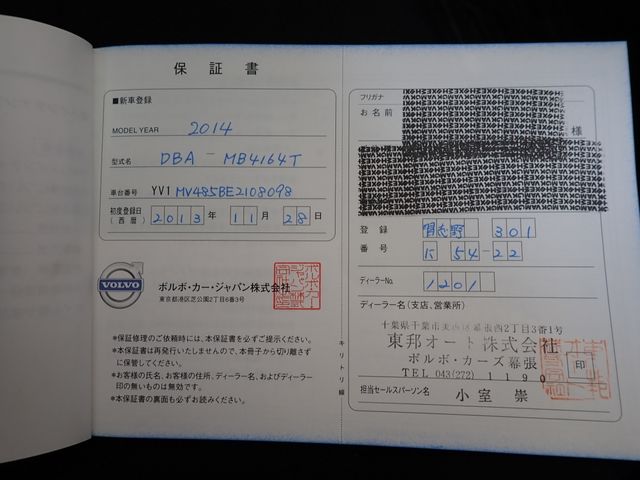 保証書
■新車登録
MODEL YEAR 2014
型式名 DBA－MB4164T
車台番号 YV1 MV485BE2108098
初度登録日(西暦) 2013年 11月 28日
VOLVO
ボルボ・カー・ジャパン株式会社
東京都港区芝公園2丁目6番3号
*保証修理のご依頼時には、本保証書を必ずご提示ください。
*本保証書は再発行いたしませんので、本冊子から切り離さずに保管してください。
*お客様の氏名、お客様の住所、ディーラー名、およびディーラー印の無いものは無効です。
*本保証書の裏面も必ずお読みください。
キリトリ線
フリガナ
お名前
様
登録番号 習志野 301
54-22
ディーラーNo. 1201
ディーラー名(支店、営業所)
千葉県千葉市
幕張西2丁目3番1号
東邦オート株式会社
ボルボ・カーズ幕張
TEL 043(272)1190
印
担当セールスパーソン名 小室 崇